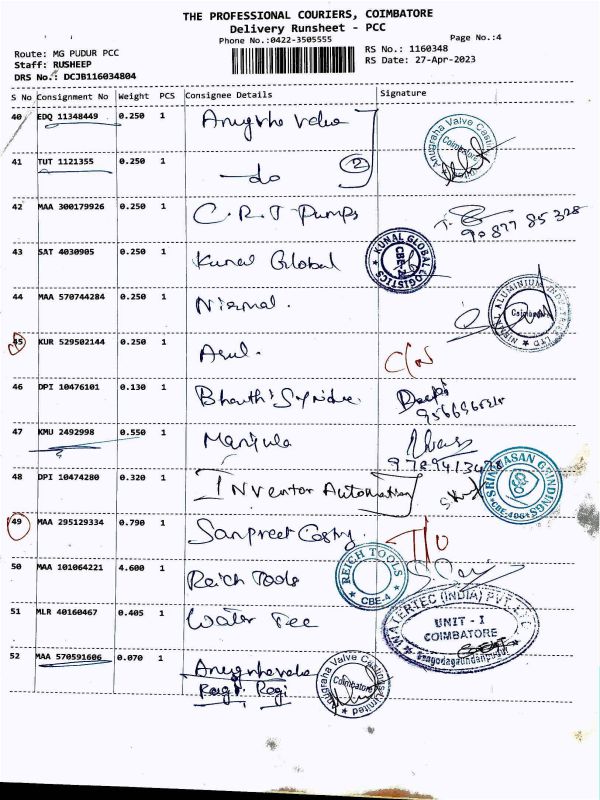 THE PROFESSIONAL COURIERS, COIMBATORE
Delivery Runsheet - PCC
Phone No.:0422-3505555
Page No.:4
Route: MG PUDUR PCC
RS No.: 1160348
Staff: RUSHEEP
RS Date: 27-Apr-2023
DRS No.: DCJB116034804
S No Consignment No Weight PCS Consignee Details Signature
40 EDQ 11348449 0.250 1 Anugrha valve
Anugraha Valve Castings Coimbatore
41 TUT 1121355 0.250 1 -do 2
42 MAA 300179926 0.250 1 C.R.I Pumps
90877 85328
43 SAT 4030905 0.250 1 Kunal Global
KUNAL GLOBAL LOGISTICS CBE
44 MAA 570744284 0.250 1 Nirmal.
NIRMAL ALUMINIUM LTD Coimbatore
45 KUR 529502144 0.250 1 Arul. C/N
46 DPI 10476101 0.130 1
47 KMU 2492998 0.550 1 Manjula
9789413478
48 DPI 10474280 0.320 1 Inventor Automation
SRINIVASAN GRINDINGS CBE-406
49 MAA 295129334 0.790 1 Sanpreet T/O
50 MAA 101064221 4.600 1 Reich Tools
REICH TOOLS CBE-4
51 MLR 40160467 0.405 1 Water Tec
WATERTEC (INDIA) PVT. LTD. UNIT - I COIMBATORE
52 MAA 570591606 0.070 1
Anugraha Valve Castings Limited Coimbatore